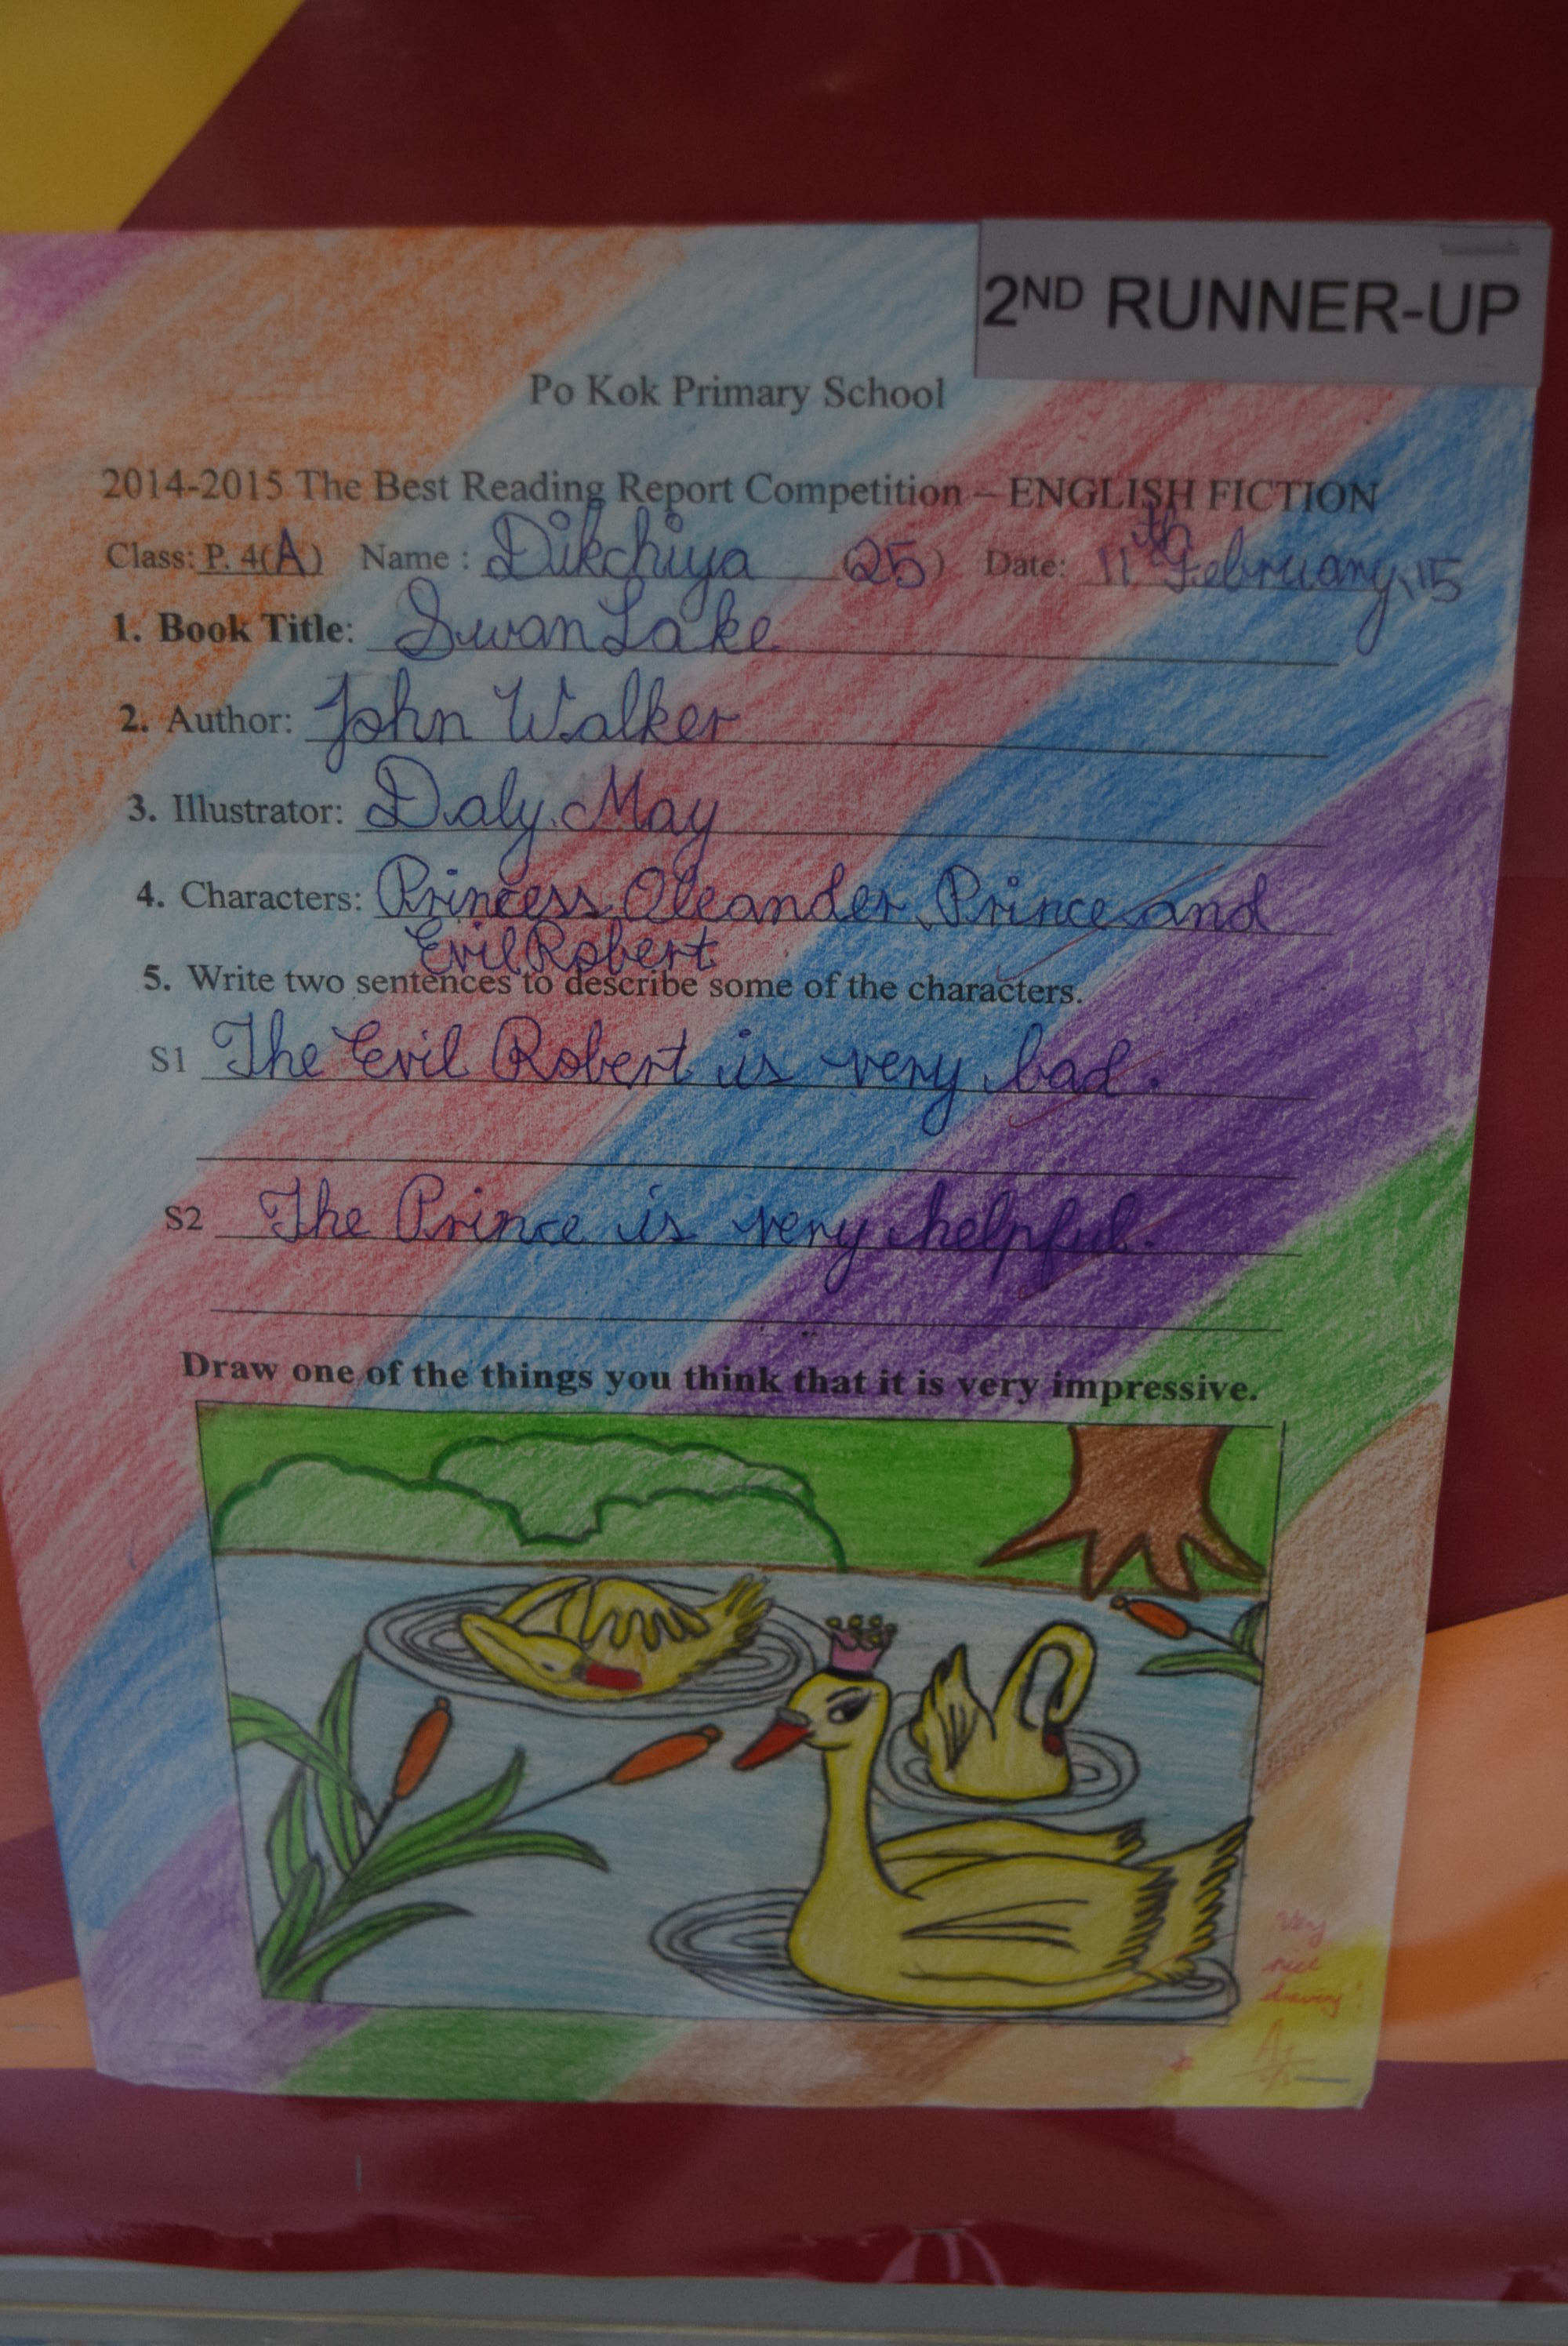 2ND RUNNER-UP
Po Kok Primary School
2014-2015 The Best Reading Report Competition – ENGLISH FICTION
Class: P. 4(A) Name : Dikchiya (25) Date: 11th February, 15
1. Book Title: Swan Lake
2. Author: John Walker
3. Illustrator: Daly, May
4. Characters: Princess Oleander, Prince and
Evil Robert
5. Write two sentences to describe some of the characters.
S1 The Evil Robert is very bad.
S2 The Prince is very helpful.
Draw one of the things you think that it is very impressive.
Very
nice
drawing!